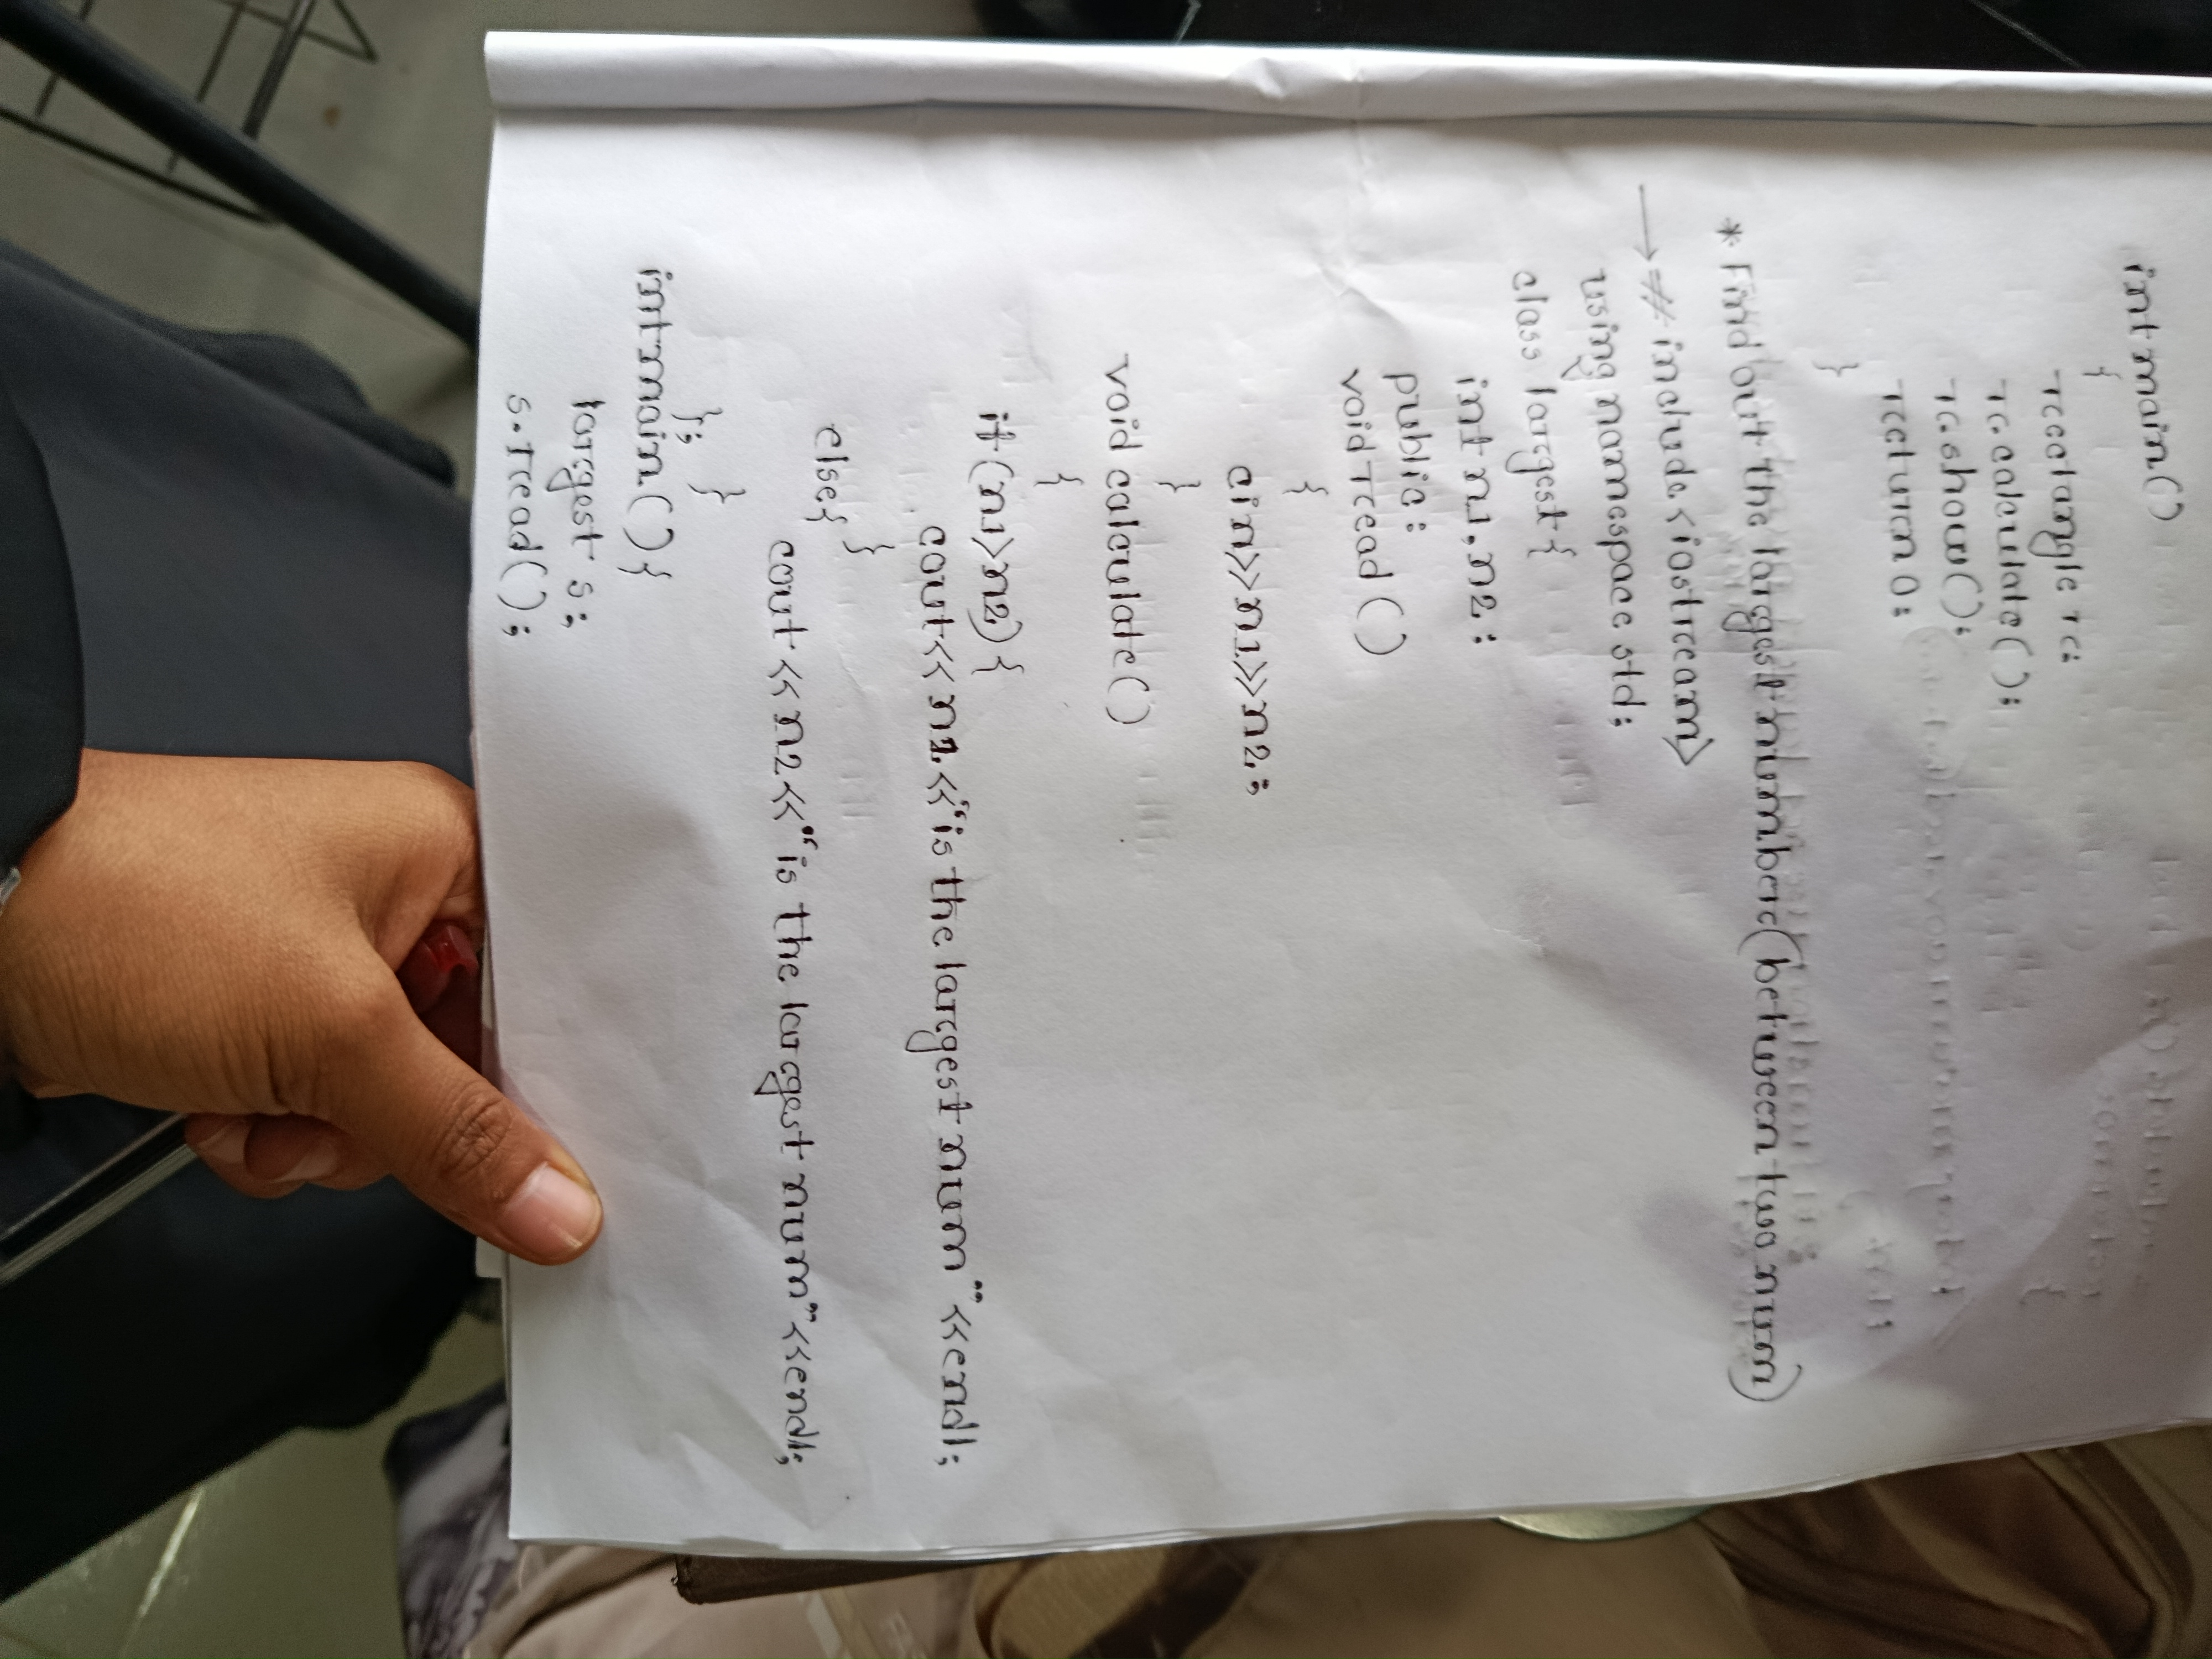 int main()
{
rectangle rc:
rc.calculate():
rc.show():
return 0:
}
* Find out the largest number(between two num)
→ # include <iostream>
using namespace std;
class largest {
int n1, n2 :
public :
void read ()
{
cin>>n1>>n2;
}
void calculate()
{
if (n1>n2) {
cout<< n1 <<"is the largest num" <<endl;
}
else{
cout << n2 << "is the largest num" <<endl;
}
};
int main() {
largest s;
s.read();